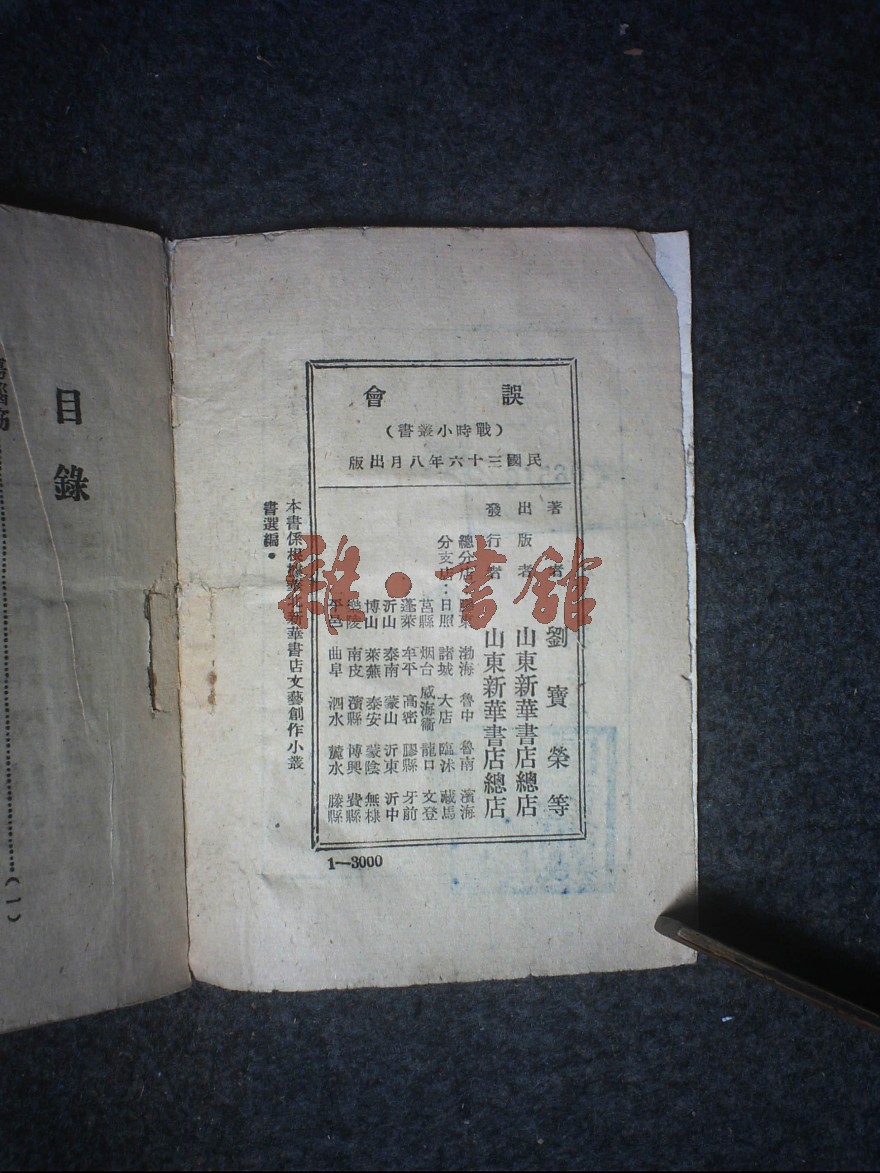 誤會
（戰時小叢書）
民國三十六年八月出版
著者 劉寶榮等
出版者 山東新華書店總店
發行者 山東新華書店總店
總分店 膠東 渤海 魯中 魯南 濱海
分支店：日照 諸城 大店 臨沭 藏馬
莒縣 烟台 威海衞 龍口 文登
蓬萊 牟平 高密 膠縣 牙前
沂山 泰南 蒙山 沂東 沂中
博山 萊蕪 泰安 蒙陰 無棣
樂陵 南皮 濱縣 博興 費縣
平邑 曲阜 泗水 麓水 滕縣
本書係根據華北新華書店文藝創作小叢
書選編。
1—3000
目錄
（1）
雜·書館